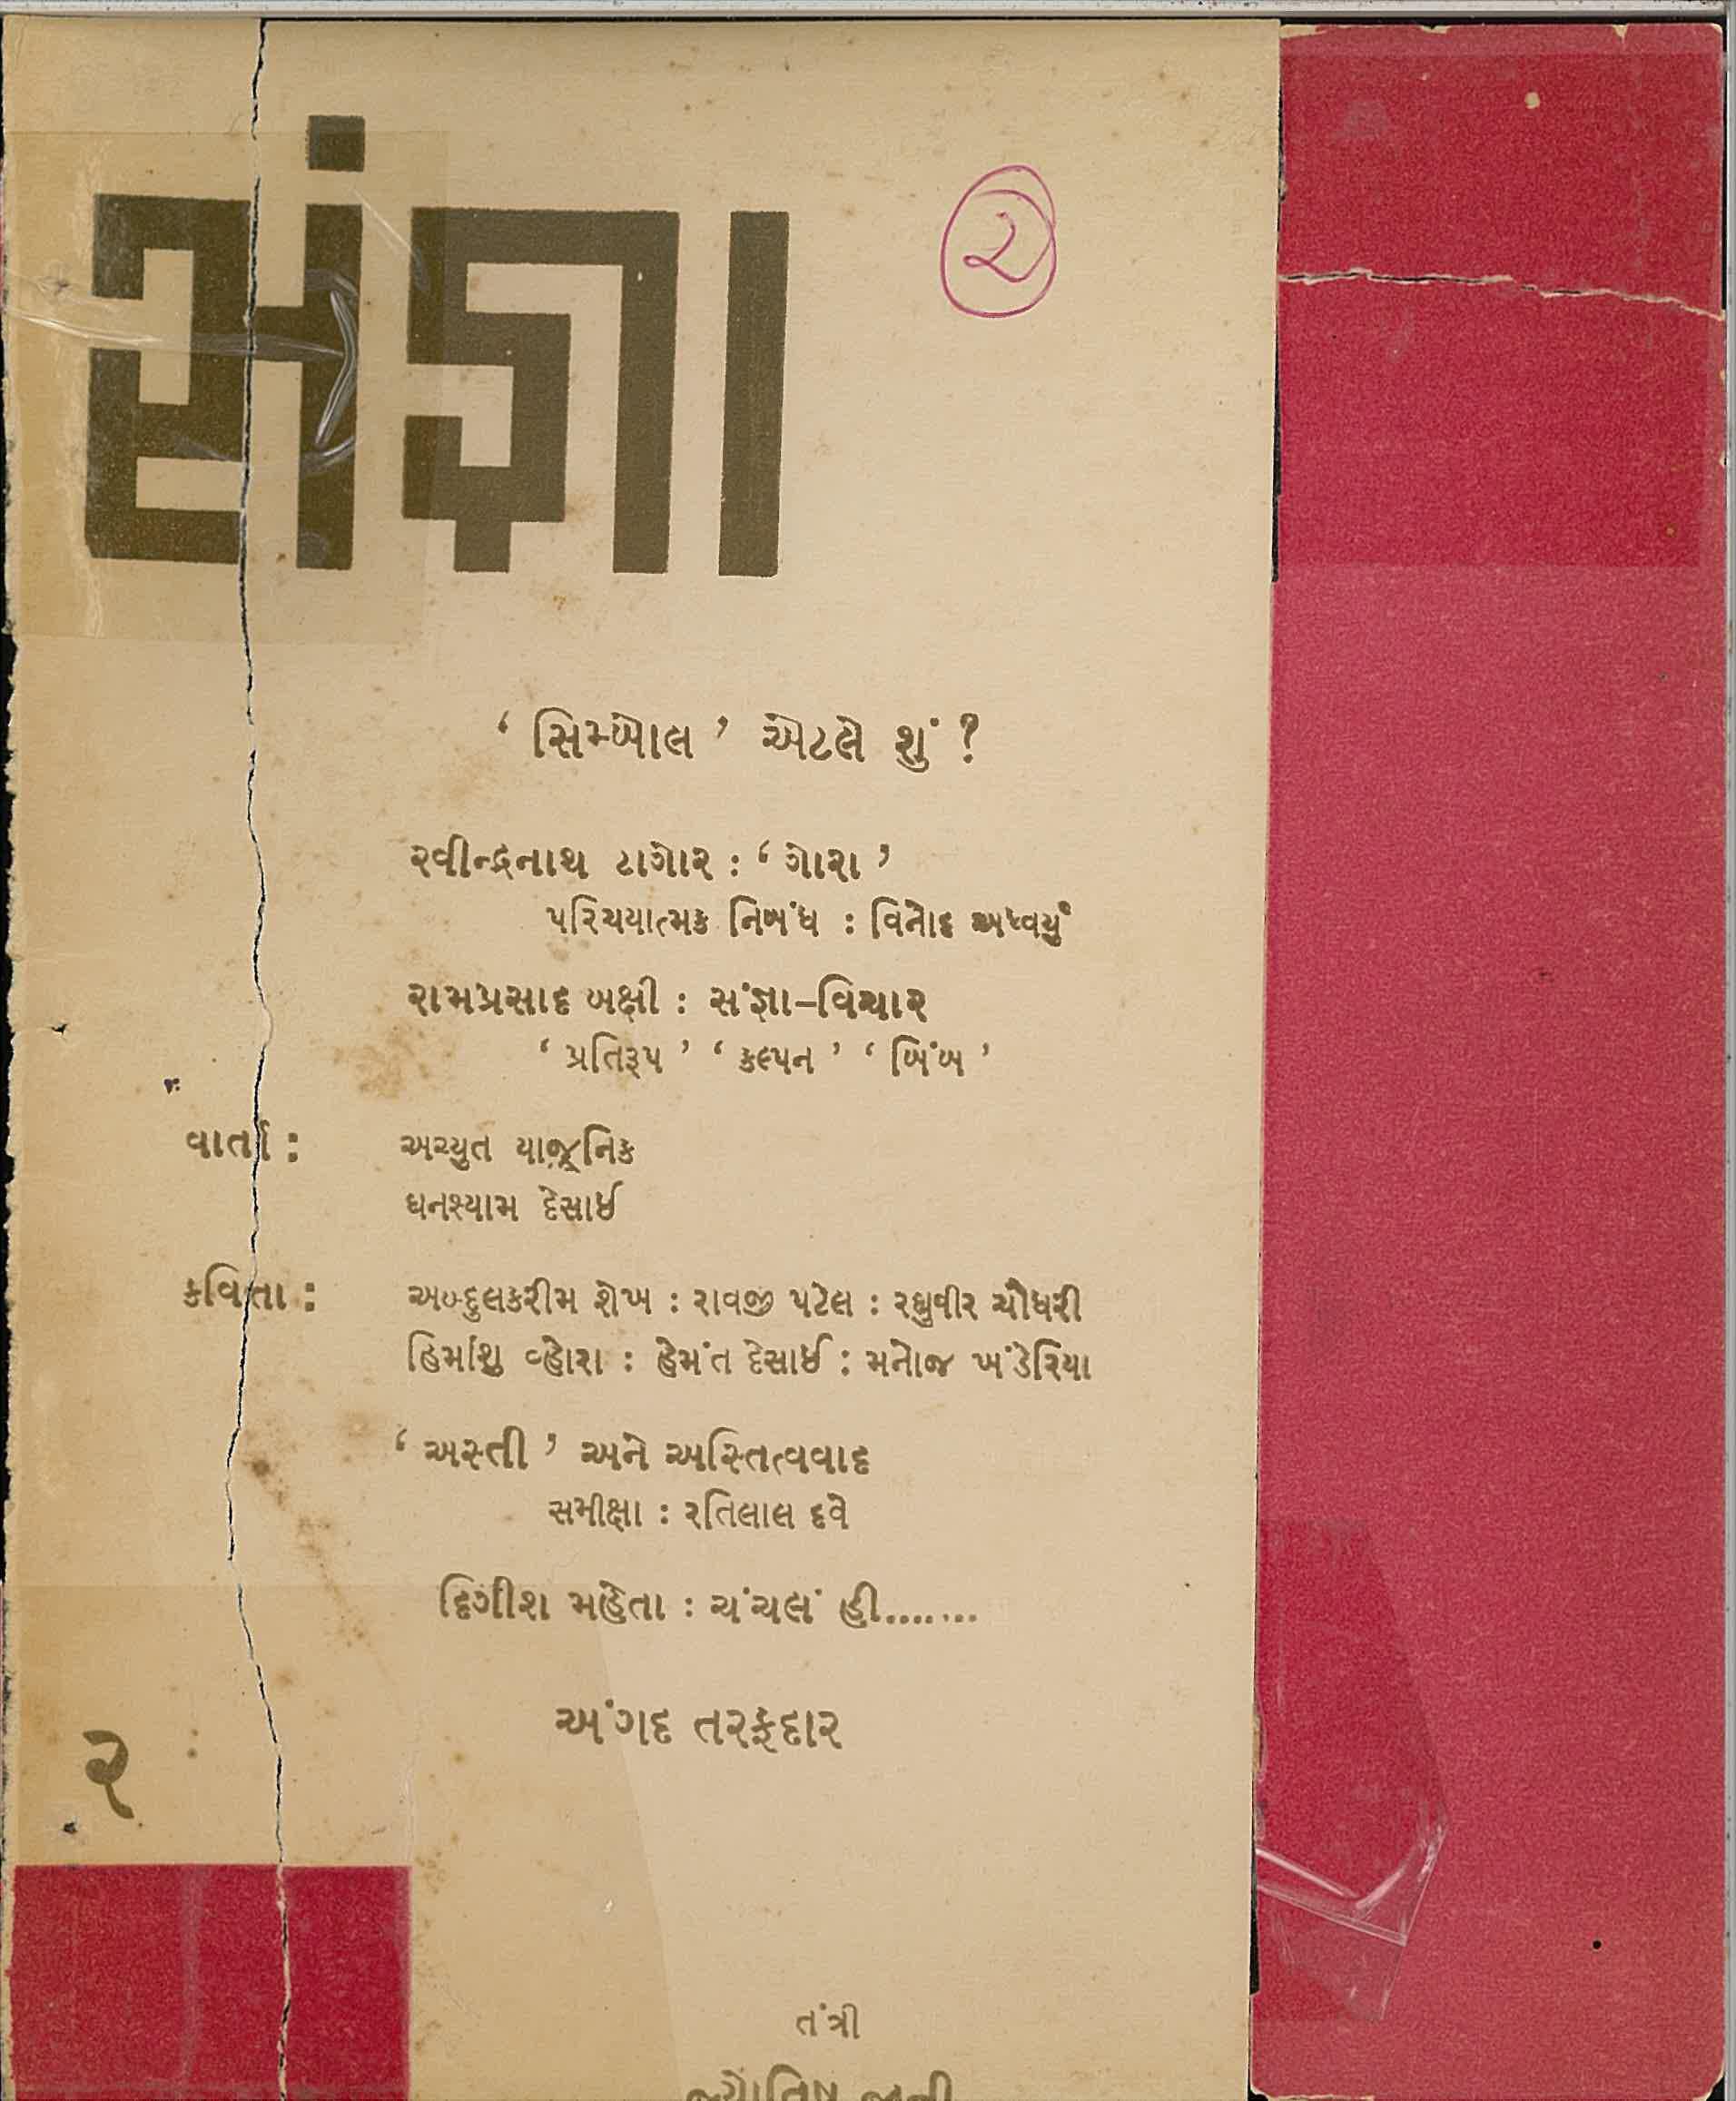 સંજ્ઞા
૨
‘ સિમ્બોલ ’ એટલે શું ?
રવીન્દ્રનાથ ટાગોર : ‘ ગોરા ’
પરિચયાત્મક નિબંધ : વિનોદ અધ્વર્યું
રામપ્રસાદ બક્ષી : સંજ્ઞા–વિચાર
‘ પ્રતિરૂપ ’ ‘ કલ્પન ’ ‘ બિંબ ’
વાર્તા : અચ્યુત યાજ્ઞિક
ઘનશ્યામ દેસાઈ
કવિતા : અબ્દુલકરીમ શેખ : રાવજી પટેલ : રઘુવીર ચૌધરી
હિમાંશુ વ્હોરા : હેમંત દેસાઈ : મનોજ ખંડેરિયા
‘ અસ્તી ’ અને અસ્તિત્વવાદ
સમીક્ષા : રતિલાલ દવે
દિગીશ મહેતા : ચંચલં હી.......
અંગદ તરફદાર
૨
તંત્રી
જ્યોતિષ જાની